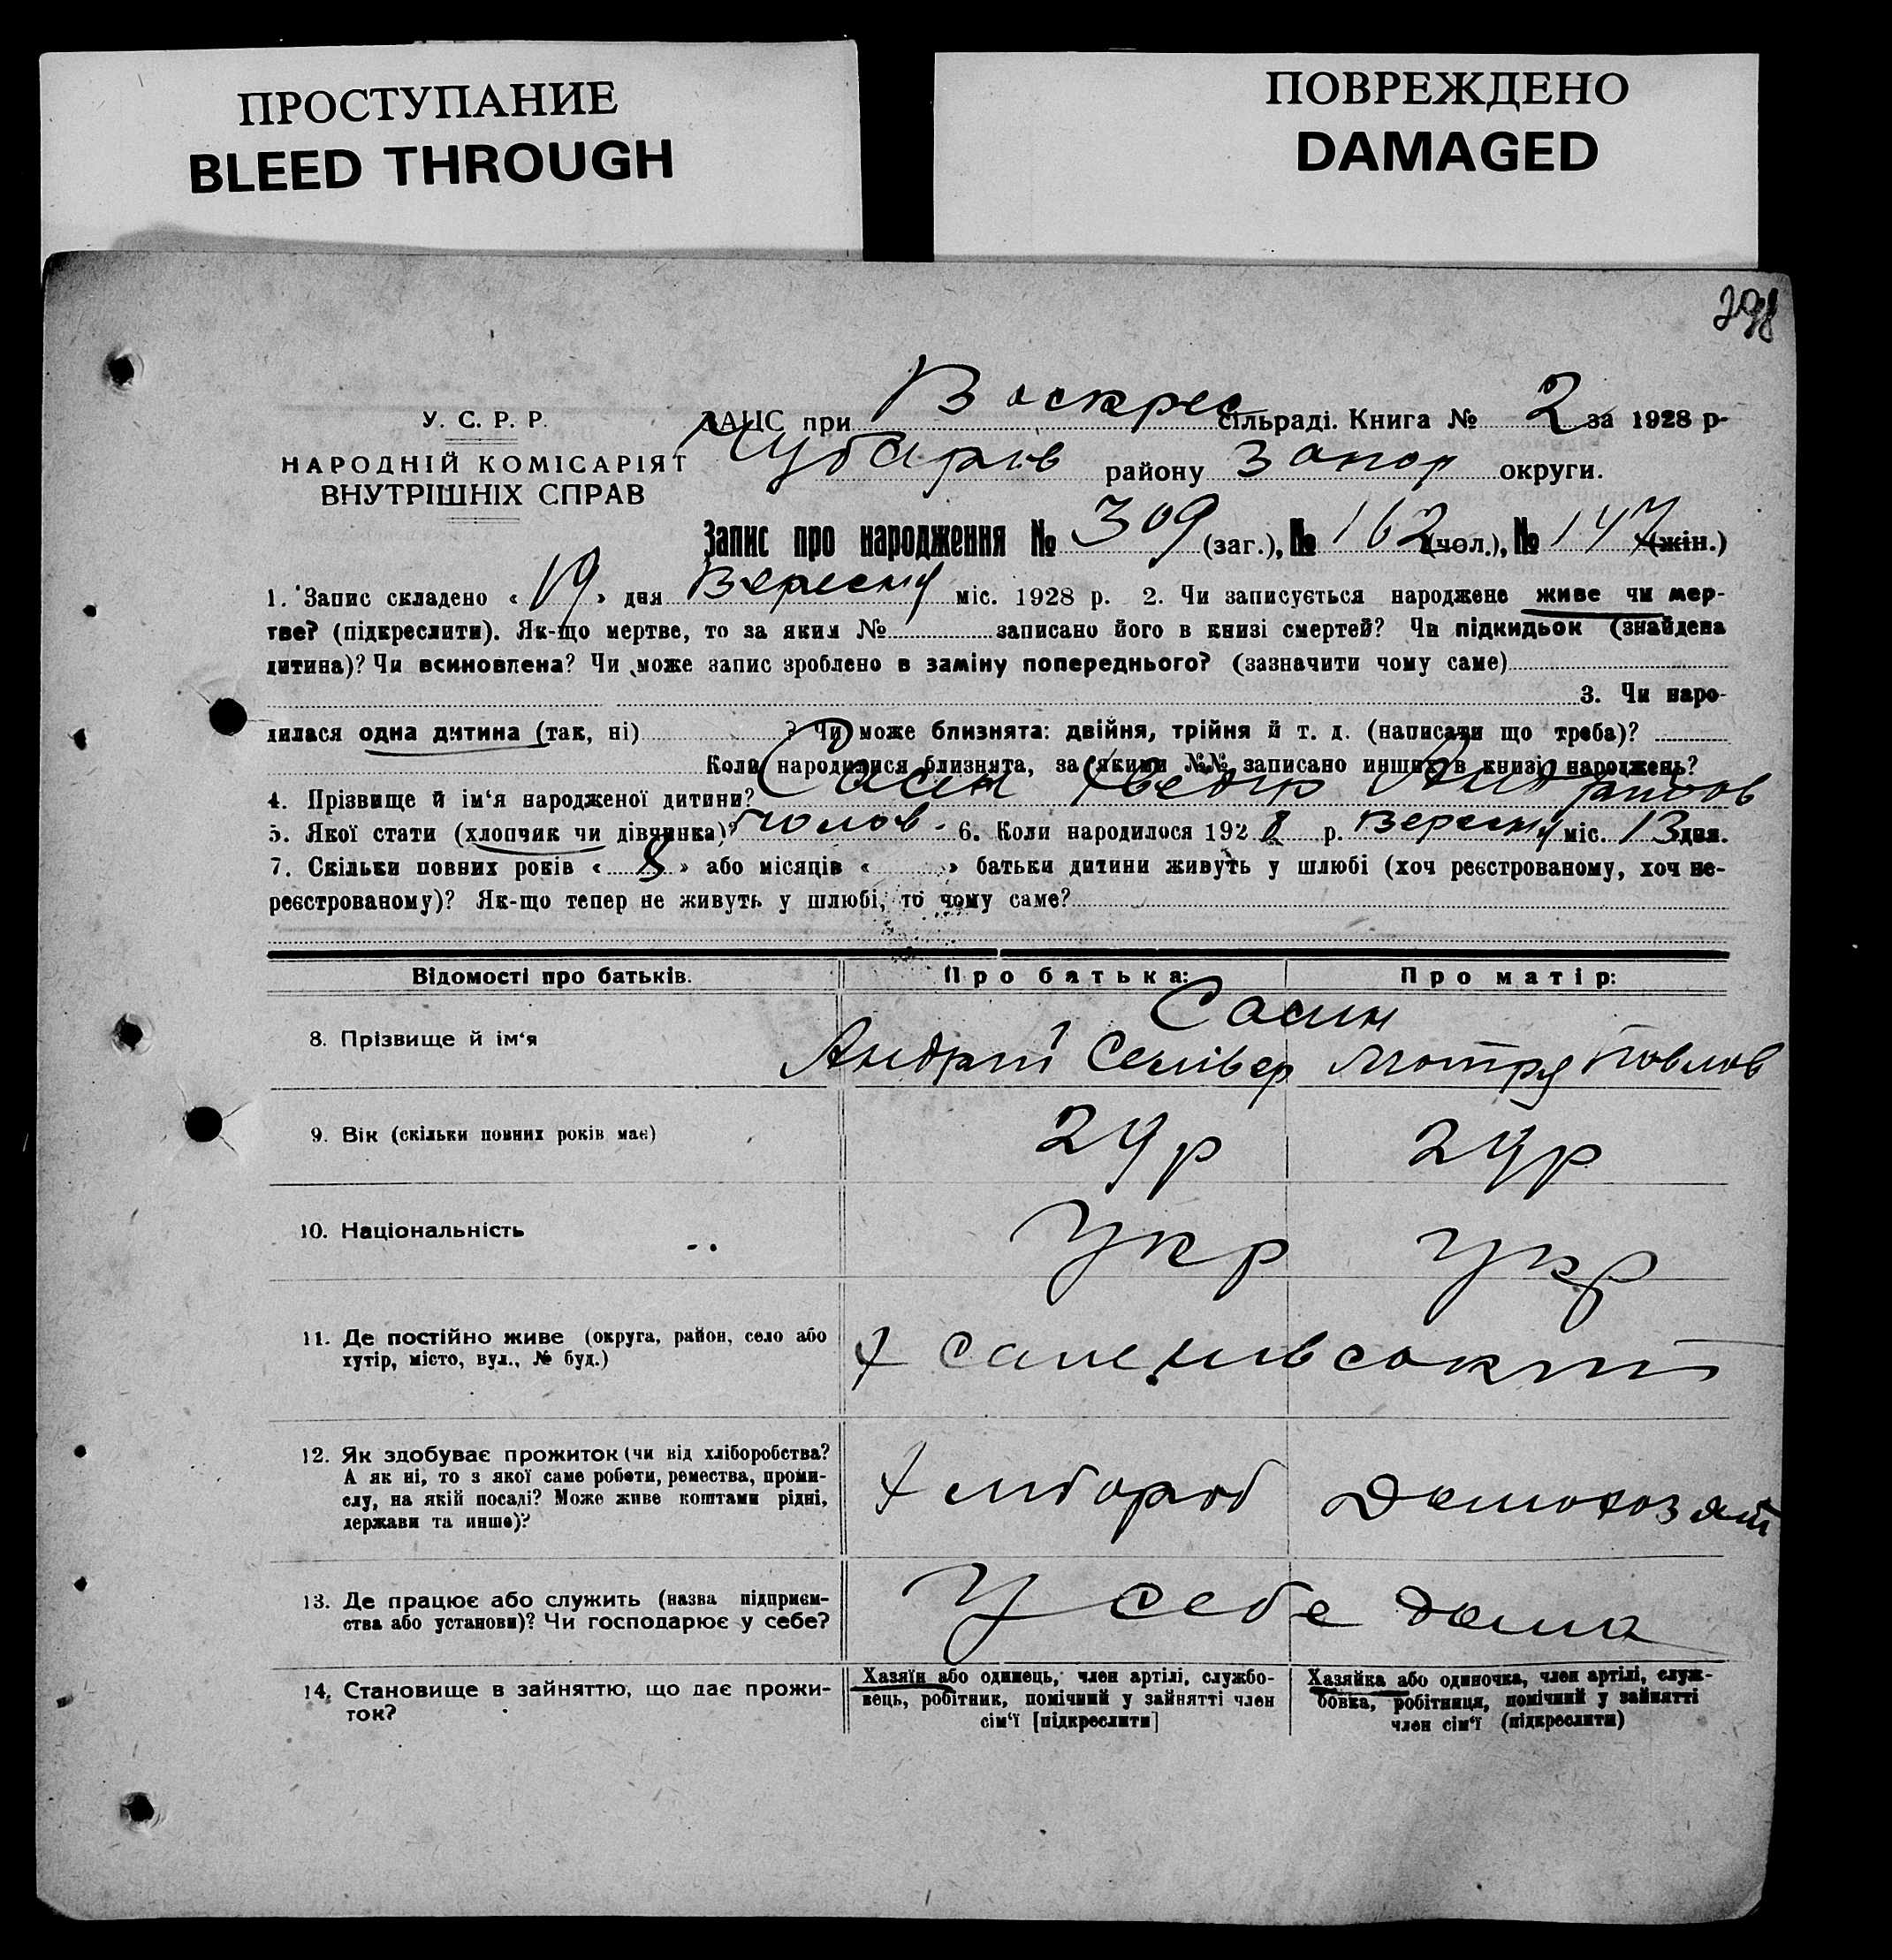 ПРОСТУПАНИЕ
BLEED THROUGH
ПОВРЕЖДЕНО
DAMAGED
298
У. С. Р. Р.
НАРОДНІЙ КОМІСАРІЯТ
ВНУТРІШНІХ СПРАВ
ЗАЦС при Воскрес сільраді. Книга № 2 за 1928 р
Чубарів району Запор округи.
Запис про народження № 309 (заг.), № 162 (чол.), № 147 (жін.)
1. Запис складено « 19 » дня Вересня міс. 1928 р. 2. Чи записується народжене живе чи мер-
тве? (підкреслити). Як-що мертве, то за яким № записано його в книзі смертей? Чи підкидьок (знайдена
дитина)? Чи всиновлена? Чи може запис зроблено в заміну попереднього? (зазначити чому саме)
3. Чи наро-
дилася одна дитина (так, ні) ? Чи може близнята: двійня, трійня й т. д. (написати що треба)?
Коли народилися близнята, за якими №№ записано инших в книзі народжень?
4. Прізвище й ім'я народженої дитини? Сасин Федір
5. Якої стати (хлопчик чи дівчинка)? чолов. 6. Коли народилося 1928 р. Вересня міс. 13 дня.
7. Скільки повних років « 8 » або місяців « » батьки дитини живуть у шлюбі (хоч реєстрованому, хоч не-
реєстрованому)? Як-що тепер не живуть у шлюбі, то чому саме?
Відомості про батьків.
Про батька:
Про матір:
8. Прізвище й ім'я
Сасин
Андрій Селівер Мотря Павлов
9. Вік (скільки повних років має)
29 р 29 р
10. Національність
Укр Укр
11. Де постійно живе (округа, район, село або
хутір, місто, вул., № буд.)
х
12. Як здобуває прожиток (чи від хліборобства?
А як ні, то з якої саме роботи, ремества, проми-
слу, на якій посаді? Може живе коштами рідні,
держави та инше)?
хлібороб Домохозяй
13. Де працює або служить (назва підприєм-
ства або установи)? Чи господарює у себе?
У себе дома
14. Становище в зайняттю, що дає прожи-
ток?
Хазяїн або одинець, член артілі, службо-
вець, робітник, помічний у зайнятті член
сім'ї [підкреслити]
Хазяйка або одиночка, член артілі, служ-
бовка, робітниця, помічний у зайнятті
член сім'ї (підкреслити)